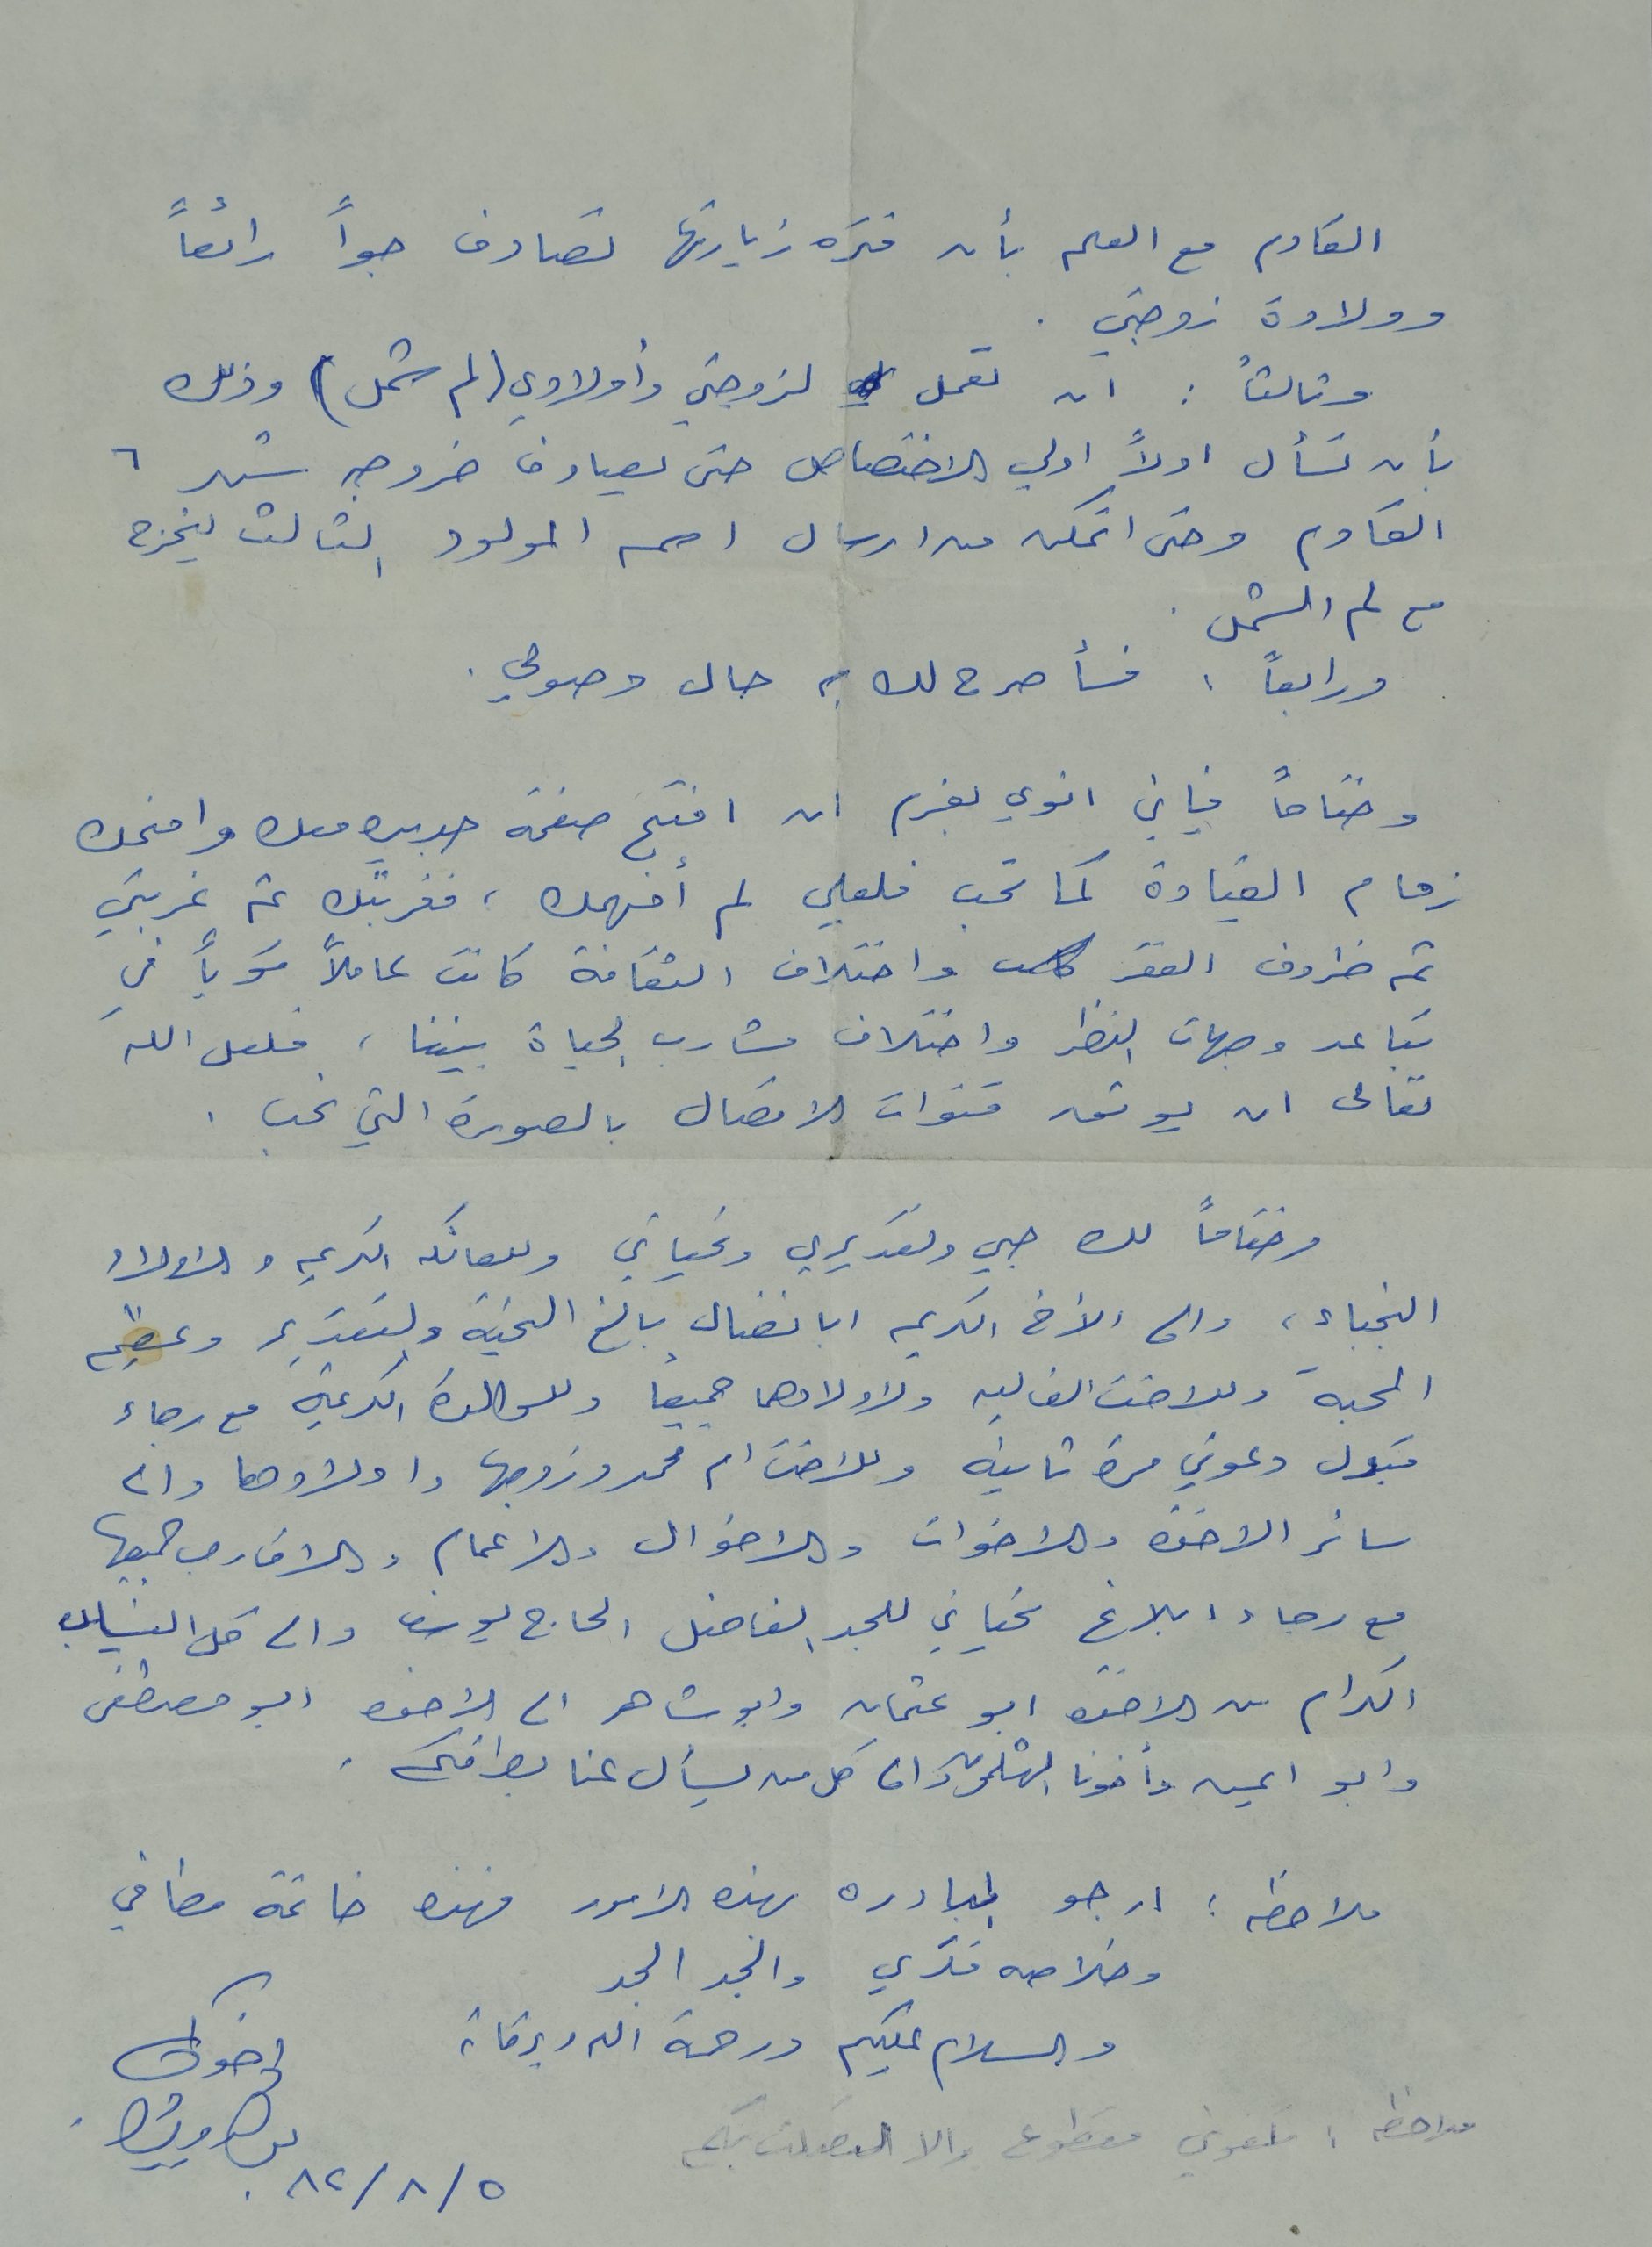 القادم مع العلم بأن فترة زيارتها تصادف جواً رائعاً
وولادة زوجتي .
وثالثاً : ان تعمل لزوجتي وأولادي (لم شمل) وذلك
بأن تسأل اولاً اولي الاختصاص حتى يصادف خروجه شهر ٦
القادم وحتى اتمكن من ارسال اسم المولود الثالث ليخرج
مع لم الشمل .
ورابعاً : فسأصرح لك به حال وصولي .
وختاماً فإني انوي بعزم ان افتح صفحة جديده معك وامنحك
زمام القيادة كما تحب فلعلي لم أفهمك ، فغربتك ثم غربتي
ثم ظروف الفقر واختلاف الثقافة كانت عاملاً قوياً في
تباعد وجهات النظر واختلاف مشارب الحياة بيننا ، فلعل الله
تعالى ان يوثق قنوات الاتصال بالصورة التي نحب .
وختاماً لك حبي وتقديري وتحياتي وللعائله الكريمه والاولاد
النجباء ، والى الأخ الكريم ابا نضال بالغ التحية والتقدير وعظيم
المحبة وللاخت الغاليه ولاولادهما جميعاً وللوالدة الكريمة مع رجاء
قبول دعوتي مرة ثانيه وللاخت ام محمد وزوجها واولادهما والى
سائر الاخوه والاخوات والاخوال والاعمام والاقارب جميعها
مع رجاء ابلاغ تحياتي للجد الفاضل الحاج يوسف والى كل
الكرام من الاخوه ابو عثمان وابو شاهر الى الاخوه ابو مصطفى
وابو ايمن وأخونا والى كل من يسأل عنا بطرفكم .
ملاحظه : ارجو المبادره بهذه الامور فهذه خاتمة مطافي
وخلاصه فكري والجد الجد
والسلام عليكم ورحمة الله وبركاته
اخوك
٨٢/٨/٥ .
ملاحظه : تلفوني مقطوع والا اتصلت بكم